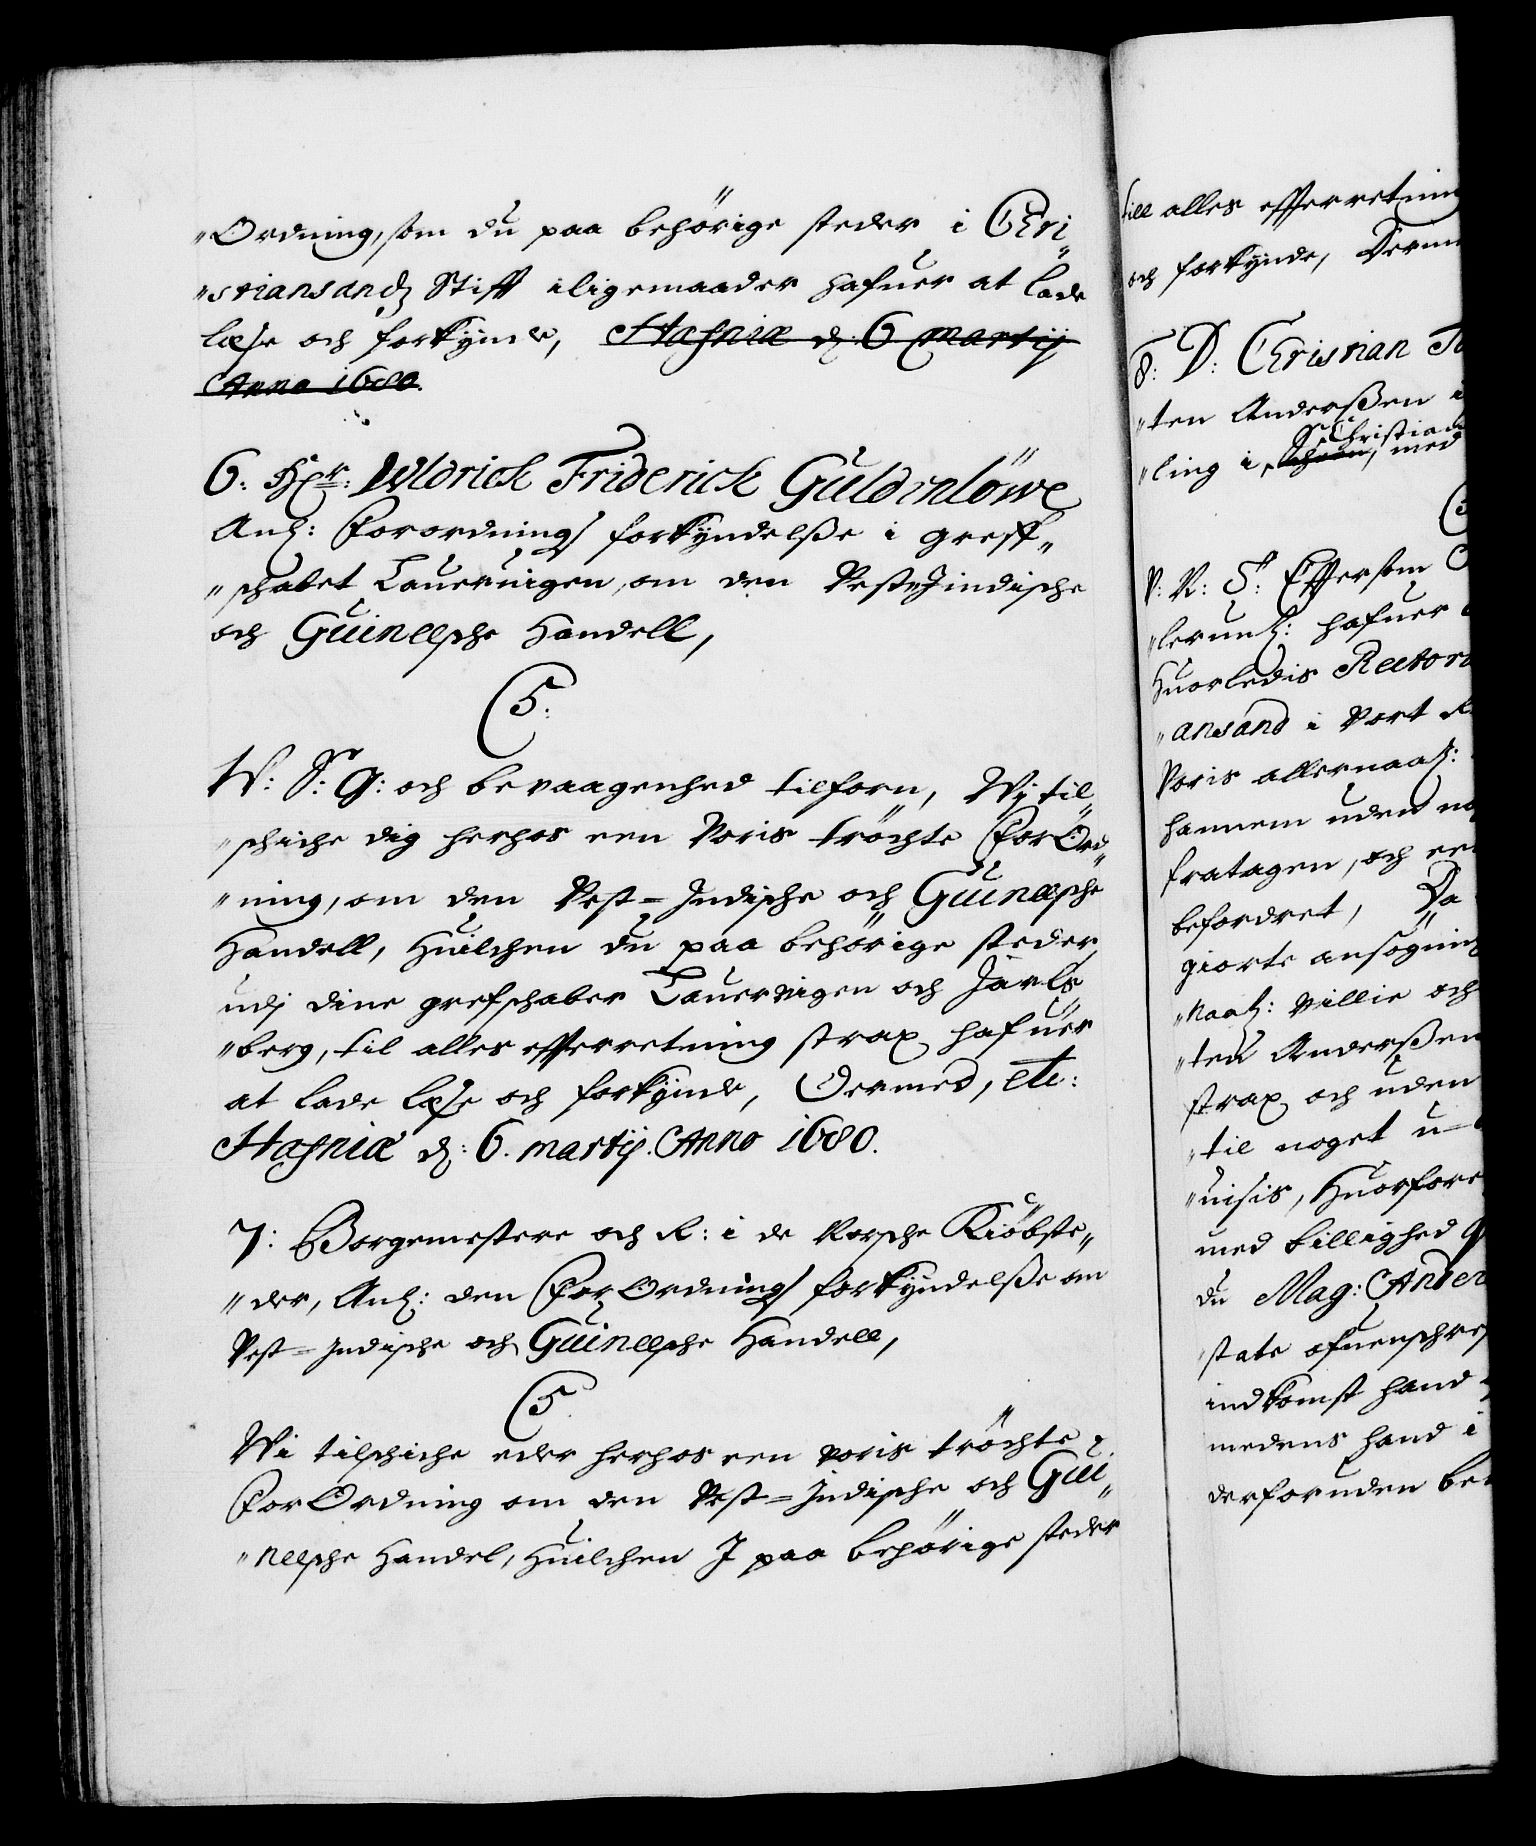 "Ordning, som du paa behörige steder i Chri"
"stiansandz Stifft iligemaader hafuer at lade
læse och forkynde, Hafniæ d: 6 Martij
Anno 1680.
6: Hr: Wldrich Friderich Güldenlöwe
Anl: Forordnings forkyndelße i Greff"
"schabet Laueruigen, om den Vest-Jndische
och Guineesche Handell,
C5:
W: S: G: och bevaagenhed tilforn, Wi til"
"schiche dig herhos een Voris tröchte ForOrd"
"ning, om den Vest-Jndische och Guineesche
Handell, Huilchen du paa behörige steder
udj dine grefschaber Lauervigen och Jarls
"berg, til alles efterretning strax hafuer
at lade læse och forkynde, Dermed, etc:
Hafniæ d: 6. martij. Anno 1680.
7: Borgemestere och R: i de Norsche Kiöbste"
"der, Anl: den ForOrdnings forkyndelße om
Vest-Jndische och Guineesche Handell,
C5
Wi tilschiche eder herhos een voris tröchte
ForOrdning om den Vest-Jndische och Gui"
"neesche Handel, Huilchen J paa behörige steder
till alles efterretning
och forkynde, Derm
8: D: Christian
"ten Anderßen i
Christian
"ling i Scheen, med
V: N: S: Eftersom
"lerunl: hafuer
Huorledis Rectora
"ansand i Vort R
Voris allernaadh:
hannem uden no
fratagen, och een
befordret, Da
giorte ansögning
"Naadh: villie och
"ten Anderßen
strax och uden
"til noget u-
"uisis, Huorfore
med billighed
du Mag: Ander
"state ofuenschref
indkomst hand
medens hand i
derforuden be